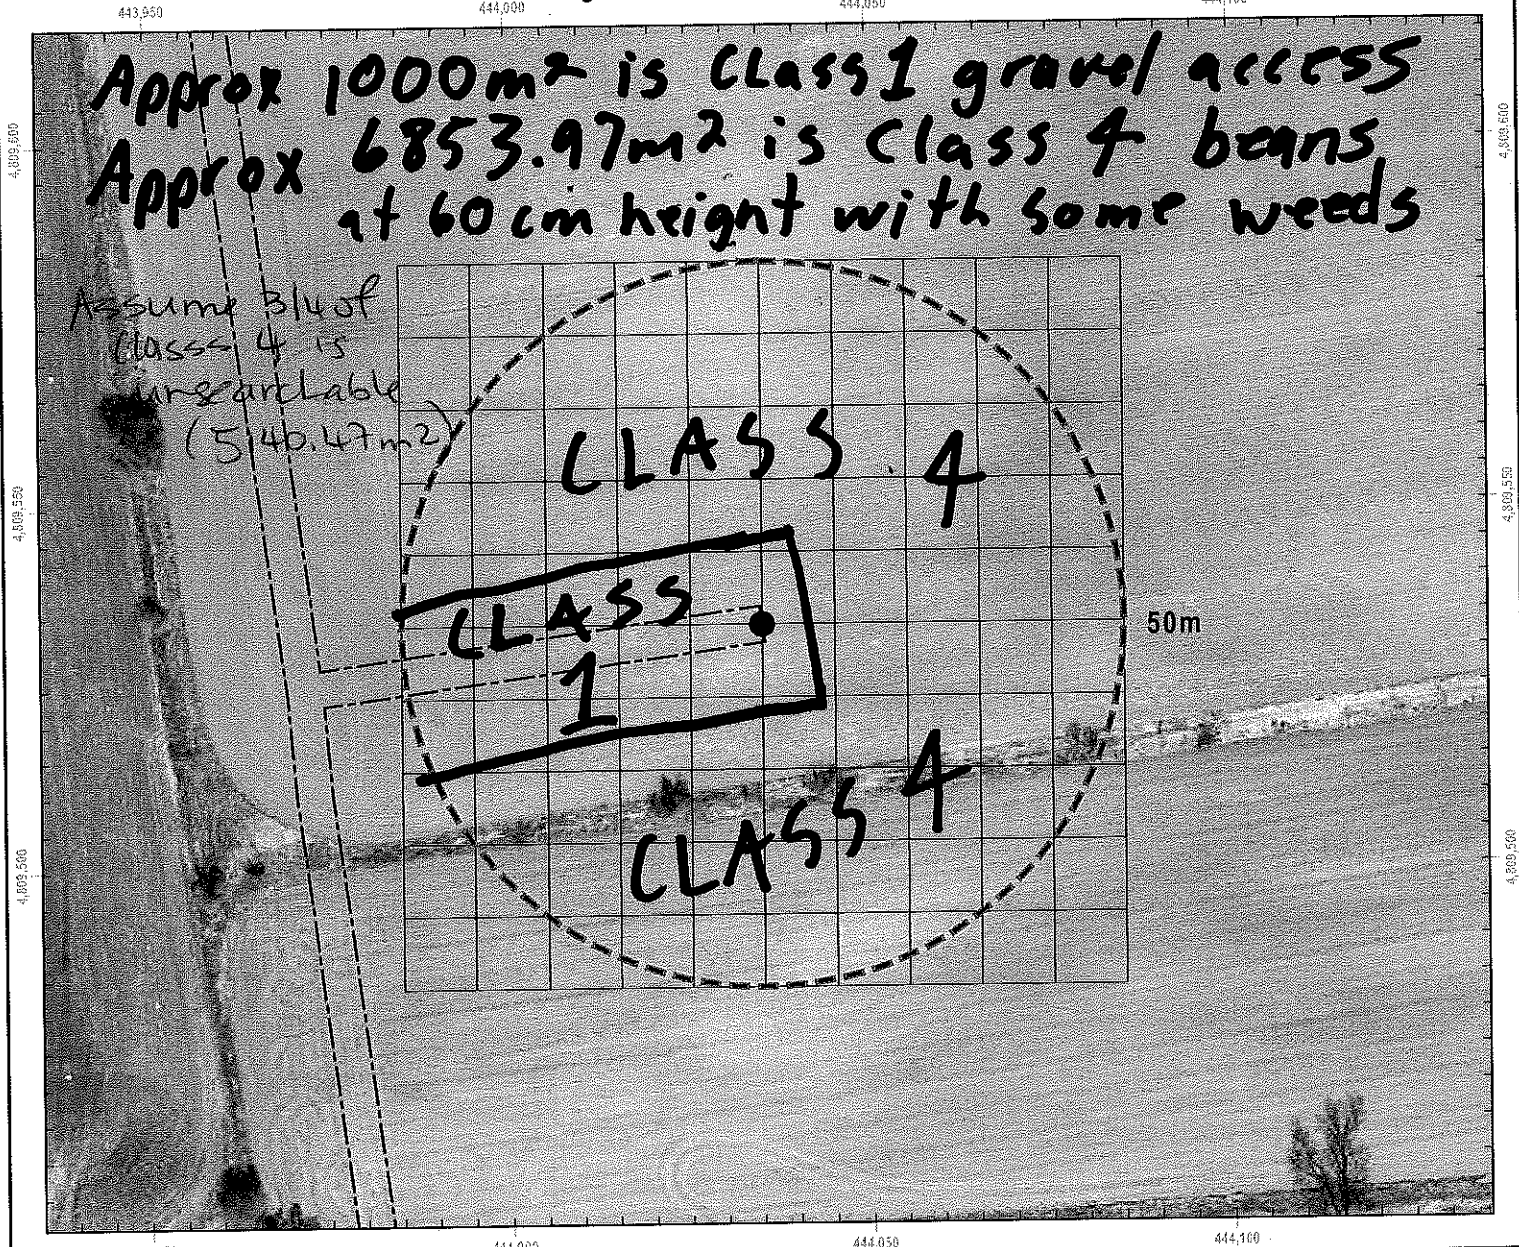 443,950 444,000 444,050 444,100
Approx 1000m² is Class 1 gravel access
Approx 6853.97m² is Class 4 beans
at 60cm height with some weeds
Assume 3/4 of
Classs 4 is
unsearchable
(5140.47m²)
4,809,600 4,809,600
CLASS 4
4,809,550 4,809,550
CLASS
1
50m
CLASS 4
4,809,500 4,809,500
444,000 444,050 444,100